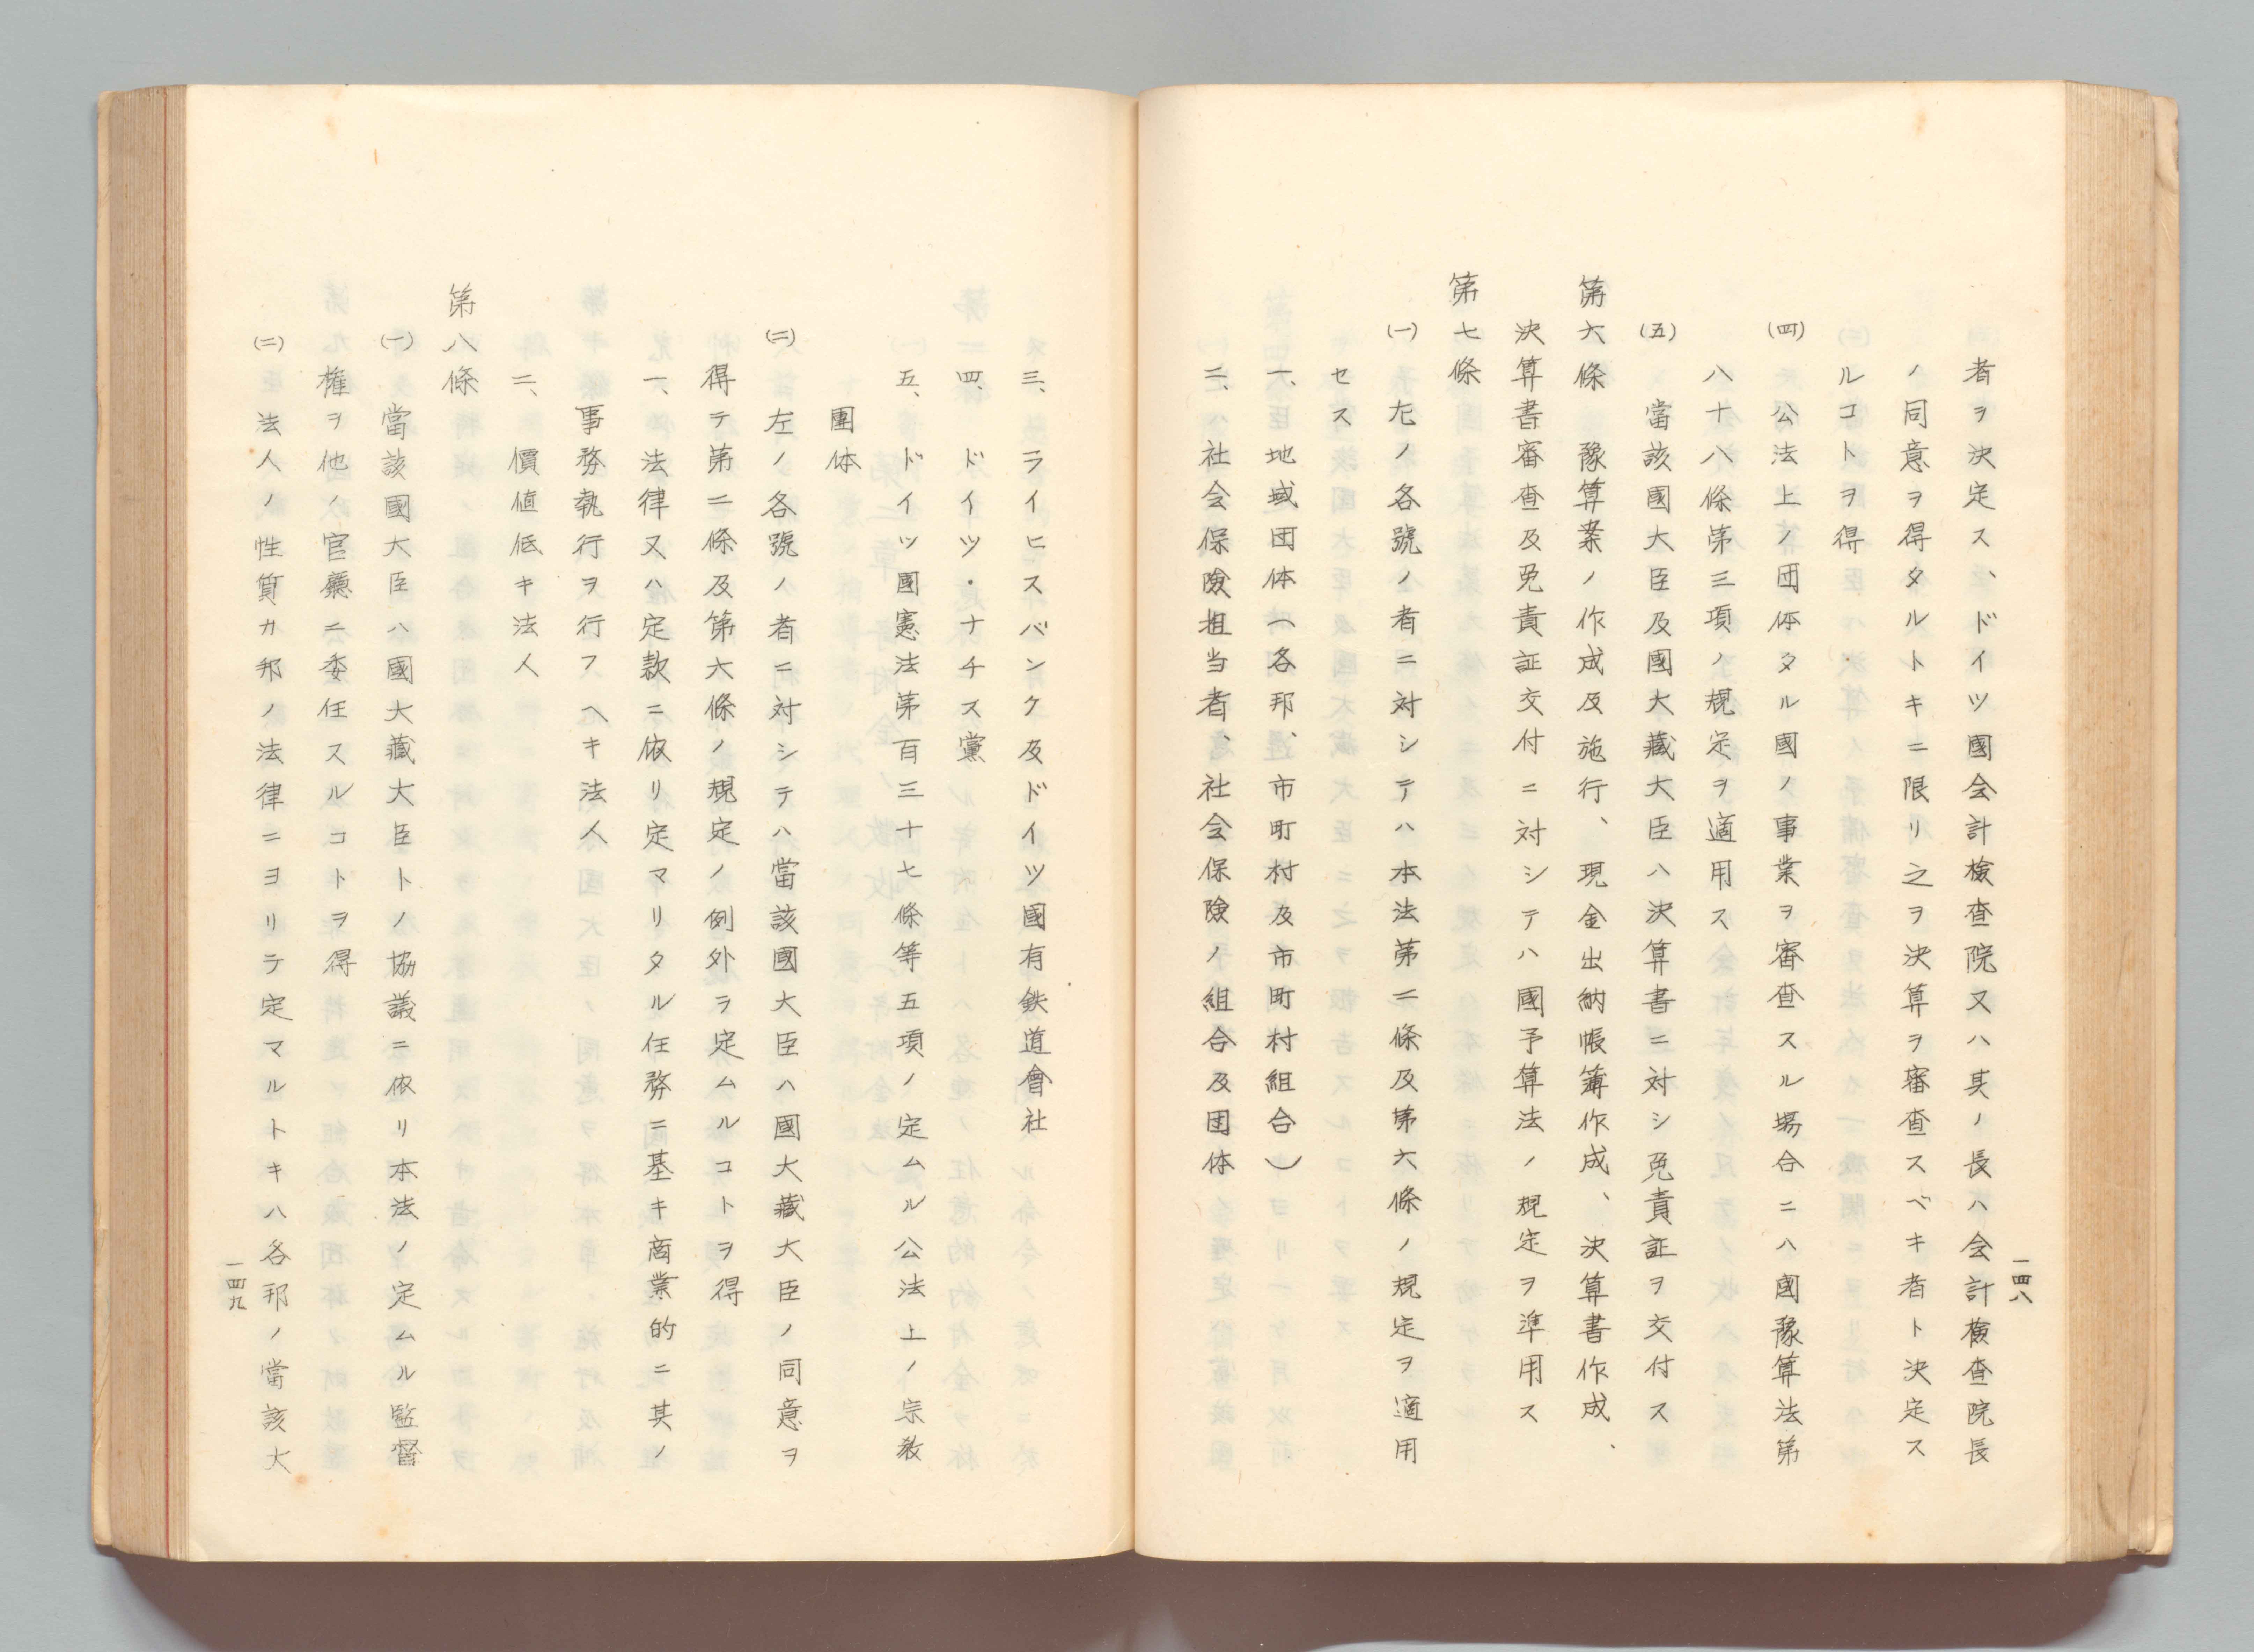 者ヲ決定ス、ドイツ國会計檢査院又ハ其ノ長ハ会計檢査院長
ノ同意ヲ得タルトキニ限リ之ヲ決算ヲ審査スベキ者ト決定ス
ルコトヲ得
(四) 公法上ノ団体タル國ノ事業ヲ審査スル場合ニハ國豫算法第
八十八條第三項ノ規定ヲ適用ス
(五) 當該國大臣及國大藏大臣ハ決算書ニ対シ免責証ヲ交付ス
第六條 豫算案ノ作成及施行、現金出納帳簿作成、決算書作成、
決算書審査及免責証交付ニ対シテハ國予算法ノ規定ヲ準用ス
第七條
(一) 左ノ各號ノ者ニ対シテハ本法第二條及第六條ノ規定ヲ適用
セス
一、地域団体(各邦、市町村及市町村組合)
二、社会保険担当者、社会保険ノ組合及団体
一四八
三、ライヒスバンク及ドイツ國有鉄道會社
四、ドイツ・ナチス黨
五、ドイツ國憲法第百三十七條等五項ノ定ムル公法上ノ宗教
團体
(二) 左ノ各號ノ者ニ対シテハ當該國大臣ハ國大藏大臣ノ同意ヲ
得テ第二條及第六條ノ規定ノ例外ラ定ムルコトヲ得
一、法律又ハ定款ニ依リ定マリタル任務ニ基キ商業的ニ其ノ
事務執行ヲ行フヘキ法人
二、價値低キ法人
第八條
(一) 當該國大臣ハ國大藏大臣トノ協議ニ依リ本法ノ定ムル監督
権ヲ他ノ官廳ニ委任スルコトヲ得
(二) 法人ノ性質カ邦ノ法律ニヨリテ定マルトキハ各邦ノ當該大
一四九